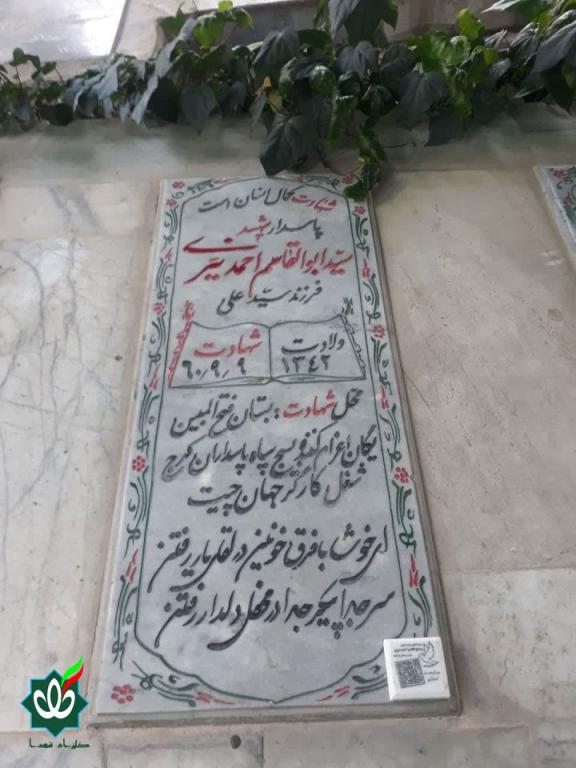 شهادت کمال انسان است
پاسدار شهید
سیّد ابوالقاسم احمدی
فرزند سیّد علی
ولادت
۱۳۴۲
شهادت
۶۰٫۹٫۹
محل شهادت: بستان فتح المبین
یگان اعزام کننده بسیج سپاه پاسداران کرج
شغل کارگر جهان چیت
ای خوشا با فرق خونین در لقای یار رفتن
سر جدا پیکر جدا در محفل دلدار رفتن
گلزار شهدا